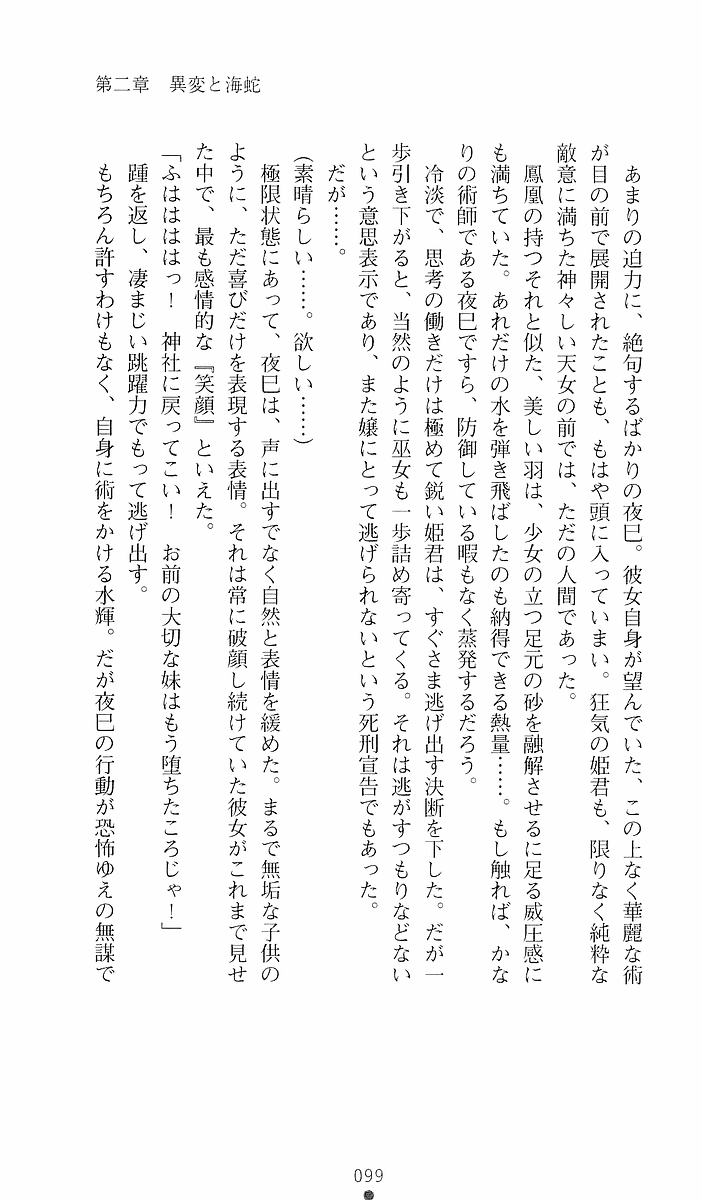 第二章　異変と海蛇
　あまりの迫力に、絶句するばかりの夜巳。彼女自身が望んでいた、この上なく華麗な術
が目の前で展開されたことも、もはや頭に入っていまい。狂気の姫君も、限りなく純粋な
敵意に満ちた神々しい天女の前では、ただの人間であった。
　鳳凰の持つそれと似た、美しい羽は、少女の立つ足元の砂を融解させるに足る威圧感に
も満ちていた。あれだけの水を弾き飛ばしたのも納得できる熱量……。もし触れば、かな
りの術師である夜巳ですら、防御している暇もなく蒸発するだろう。
　冷淡で、思考の働きだけは極めて鋭い姫君は、すぐさま逃げ出す決断を下した。だが一
歩引き下がると、当然のように巫女も一歩詰め寄ってくる。それは逃がすつもりなどない
という意思表示であり、また嬢にとって逃げられないという死刑宣告でもあった。
　だが……。
（素晴らしい……。欲しい……）
　極限状態にあって、夜巳は、声に出すでなく自然と表情を緩めた。まるで無垢な子供の
ように、ただ喜びだけを表現する表情。それは常に破顔し続けていた彼女がこれまで見せ
た中で、最も感情的な『笑顔』といえた。
「ふはははははっ！　神社に戻ってこい！　お前の大切な妹はもう堕ちたころじゃ！」
　踵を返し、凄まじい跳躍力でもって逃げ出す。
　もちろん許すわけもなく、自身に術をかける水輝。だが夜巳の行動が恐怖ゆえの無謀で
099